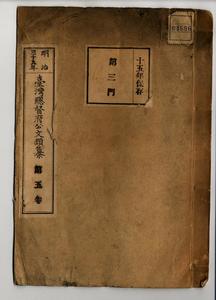 十五年保存
第三門
明治
三十五年
臺灣總督府公文類纂
第五卷